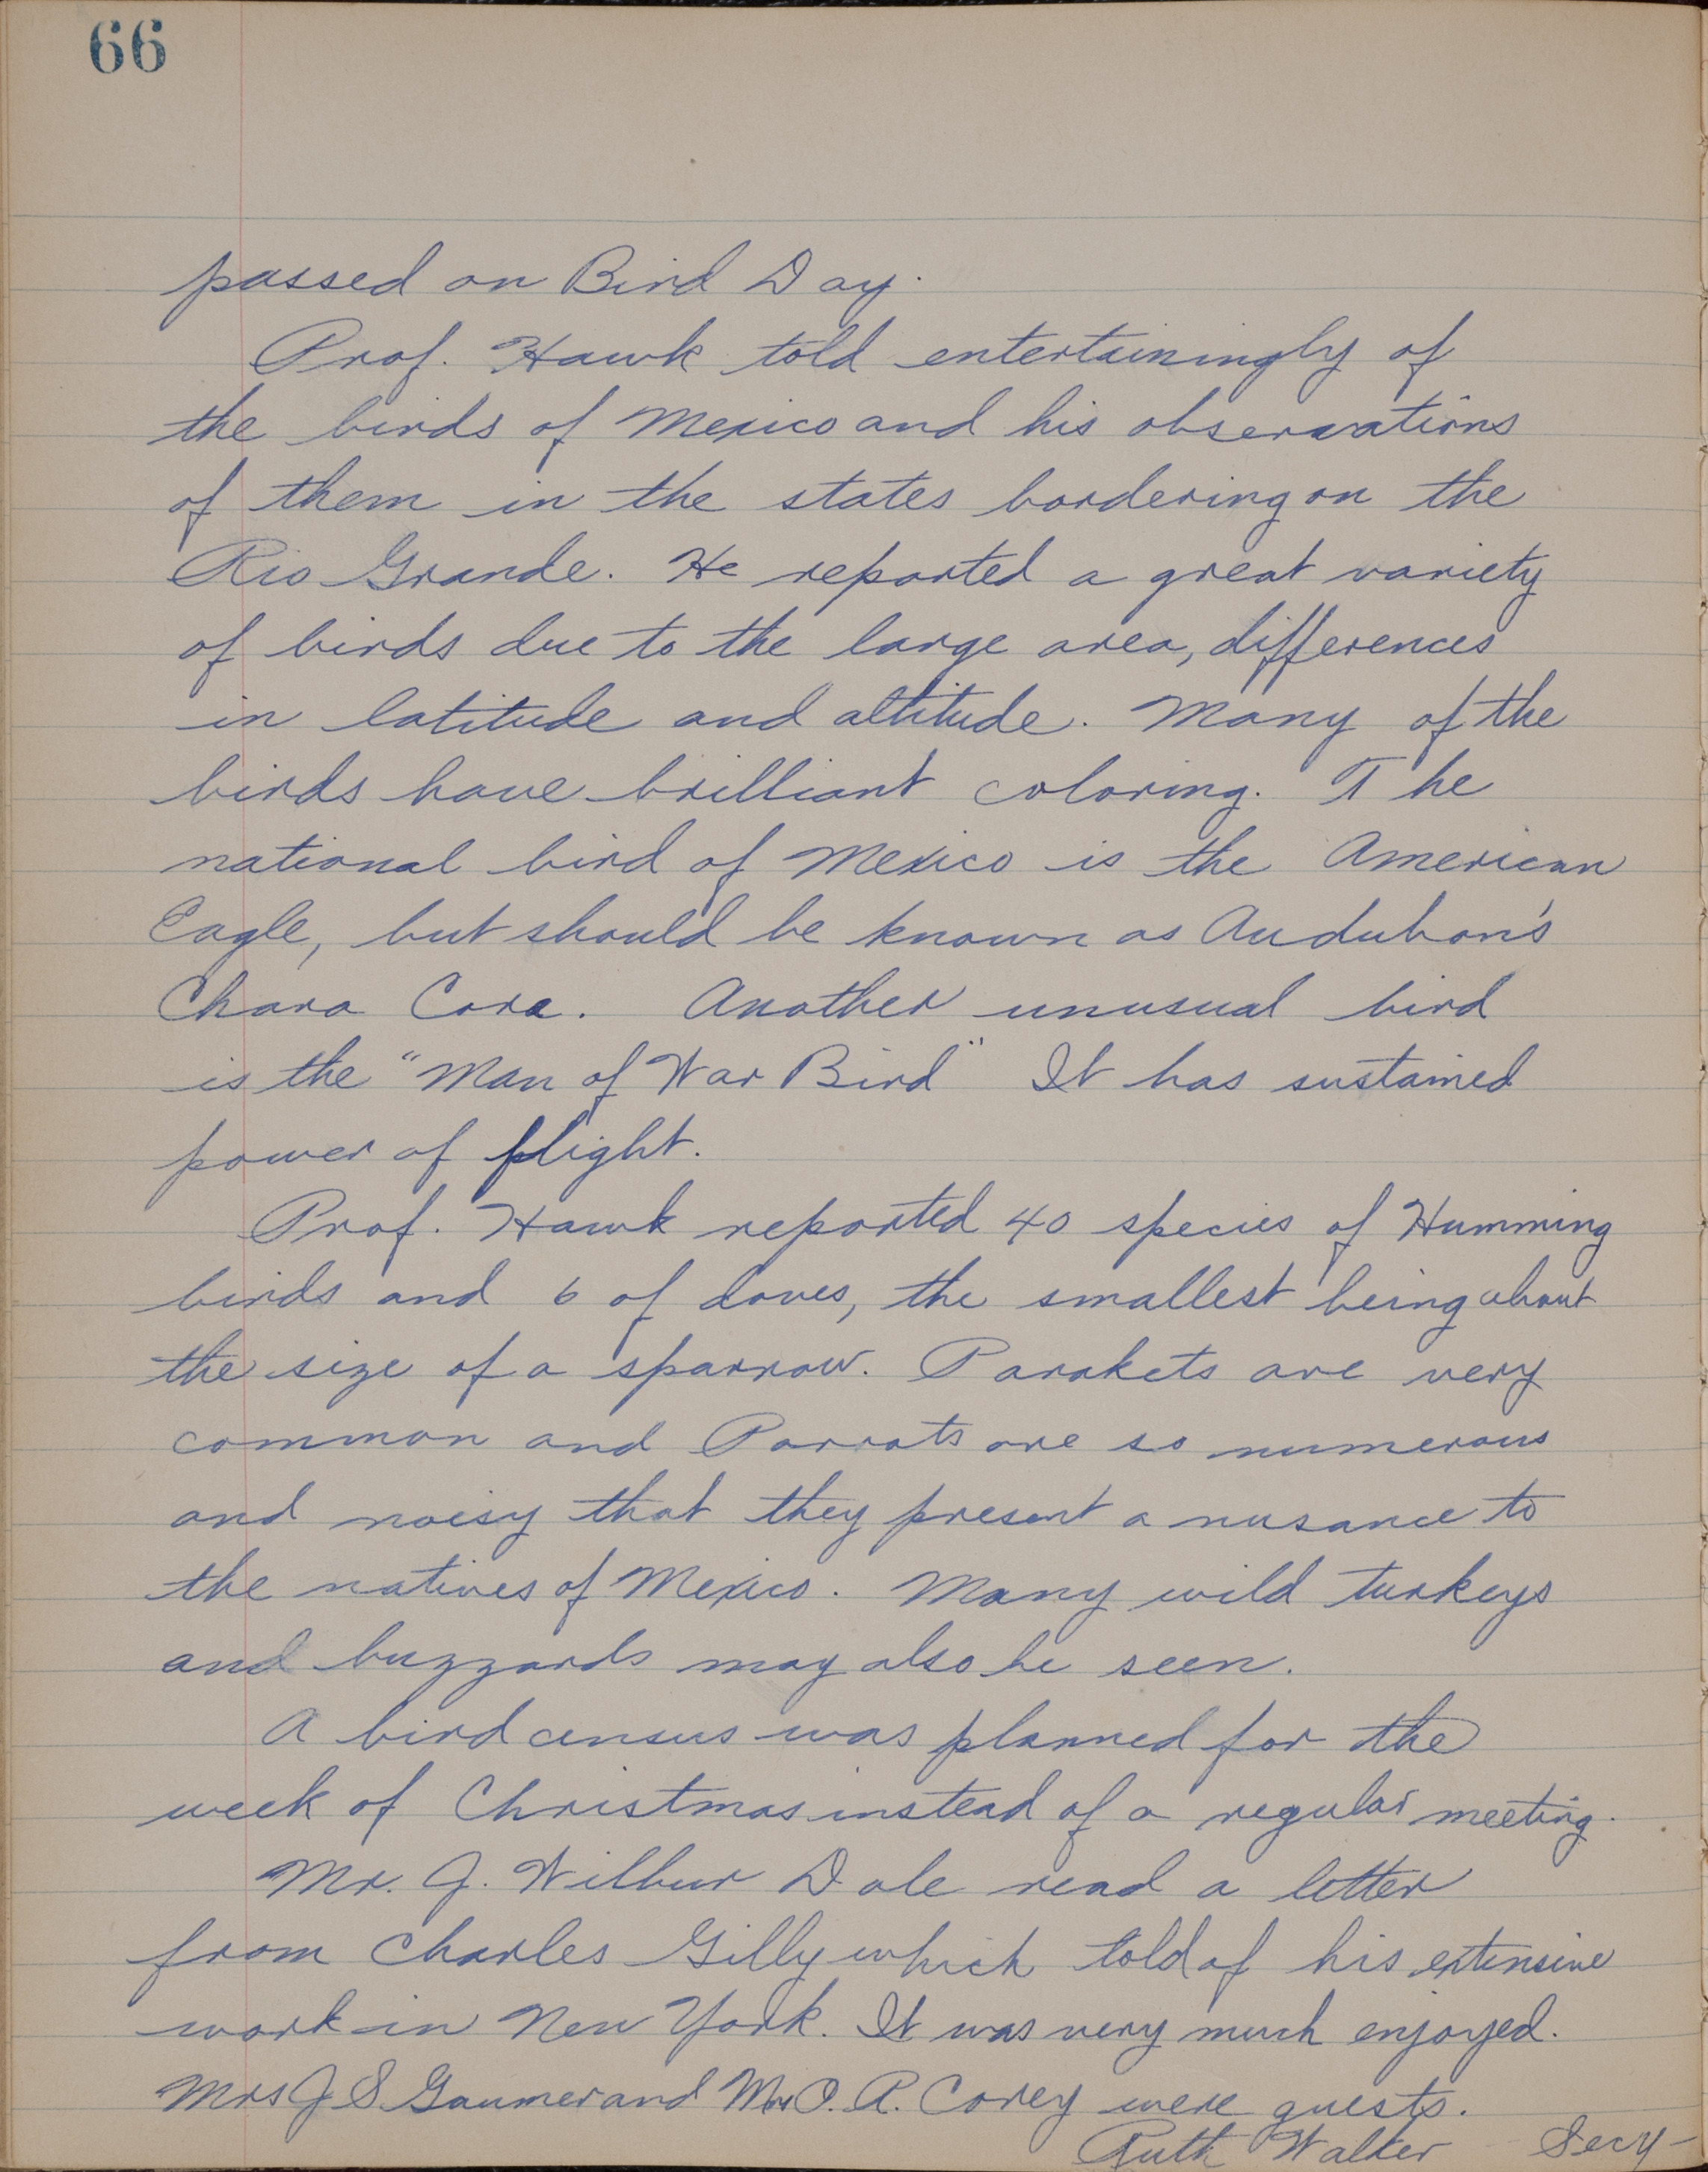 66
passed on Bird Day.
Prof. Hawk told entertainingly of
the birds of Mexico and his observations
of them in the states bordering on the
Rio Grande. He reported a great variety
of birds due to the large area, differences
in latitude and altitude. Many of the
birds have brilliant coloring. The
national bird of Mexico is the American
Eagle, but should be known as Audubon's
Chara Cara. Another unusual bird
is the "Man of War Bird" It has sustained
power of flight.
Prof. Hawk reported 40 species of Humming
birds and 6 of doves, the smallest being about
the size of a sparrow. Parakets are very
common and Parrots are so numerous
and noisy that they present a nusance to
the natives of Mexico. Many wild turkeys
and buzzards may also be seen.
A bird census was planned for the
week of Christmas instead of a regular meeting.
Mr. J. Wilbur Dale read a letter
from Charles Gilly which told of his extensive
work in New York. It was very much enjoyed.
Mrs J S Gaumer and Mr O. R. Corey were guests.
Ruth Walker Secy-